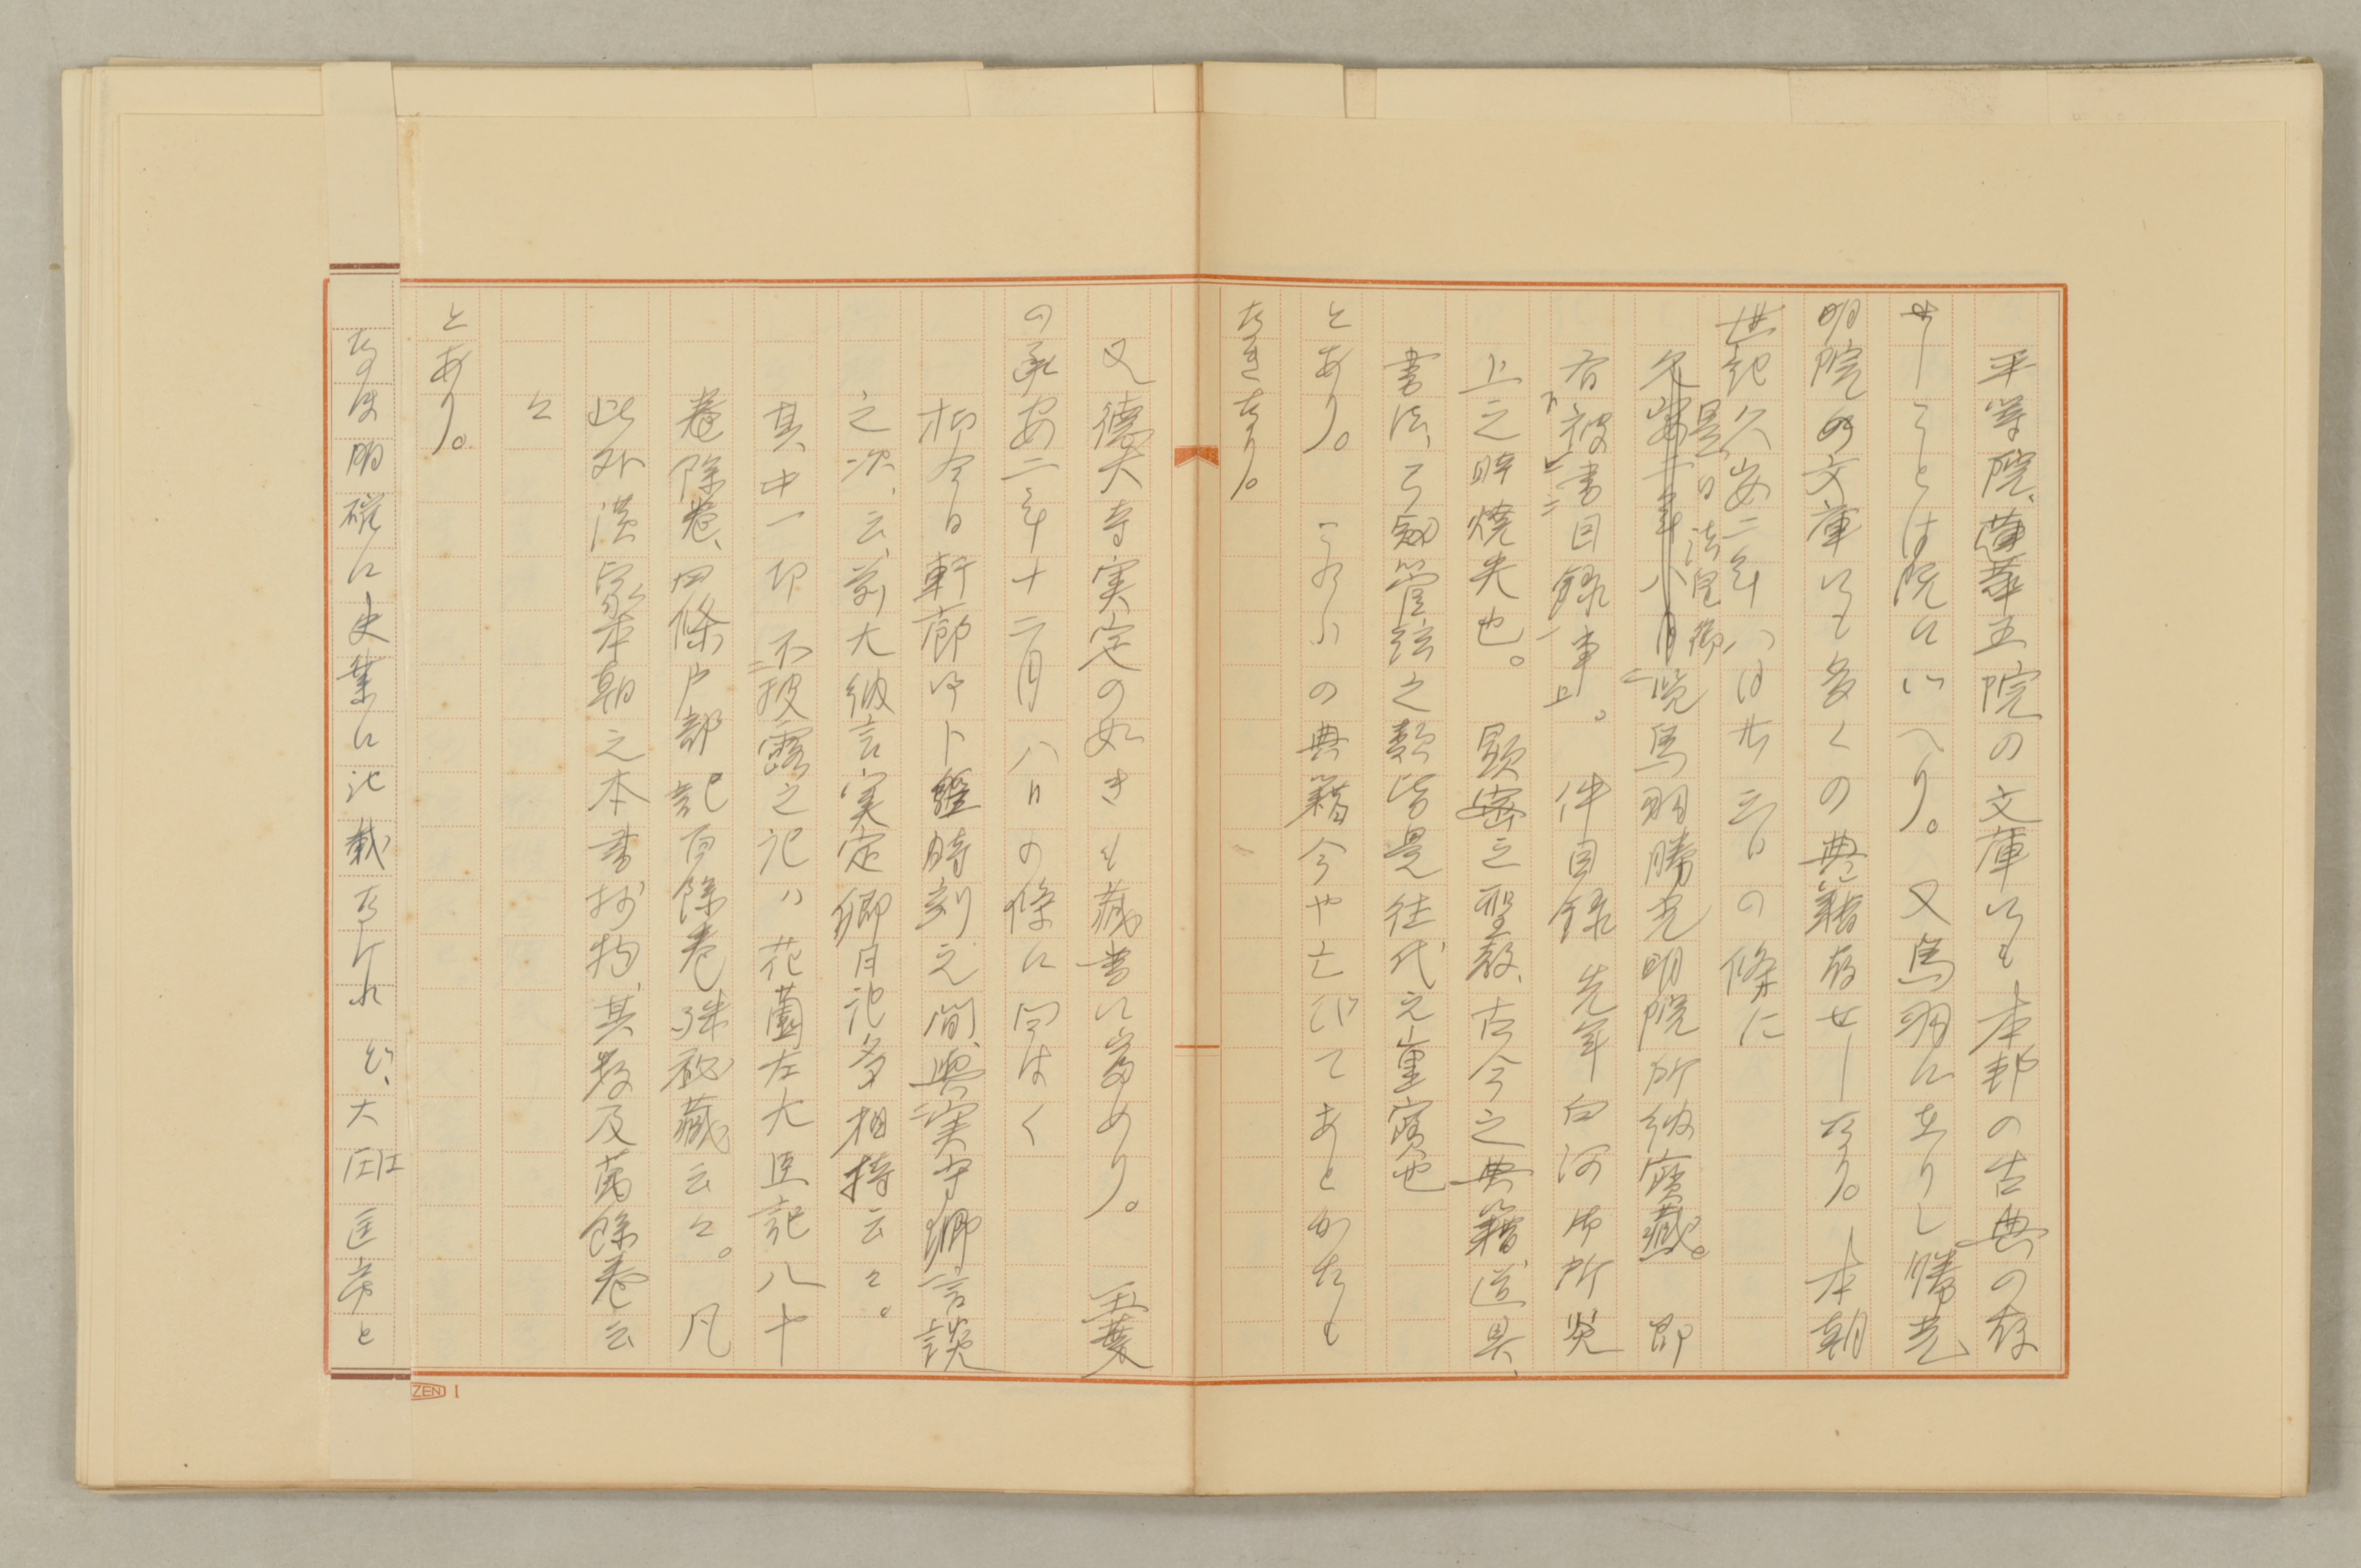 平等院、蓮華王院の文庫にも本邦の古典の存
せしことは既にいへり。又鳥羽に在りし勝光
明院の文庫にも多くの典籍存せしなり。本朝
世紀久安二年八月廿三日の條に
是日法皇御
久安二年八月覧鳥羽勝光明院所納宝蔵。 即
有下被書目録事上。 件目録 先年白河御所炎
上之時焼失也。 顕密之聖教、古今之典籍、道具、
書法、弓剣管弦之類皆是往代之重寳也
とあり。 の典籍今や亡びてあとかたも
なきなり。
又徳大寺実定の如きも藏書に富めり。 玉葉
の承安二年十二月八日の條に同じく
抑今日軒廊御卜經時刻之間、與実守卿言談
之次、云、前大納言実定卿日記多相持云々。
其中一切不披露之記ハ花薗左大臣記八十
巻除巻、四條戸部記百餘巻殊秘藏云々。 凡
此外漢家本朝之本書抄物、其数及萬餘巻云
々
とあり。
なほ明確に史業に記載なけれど、大江匡房と
ZEN 1